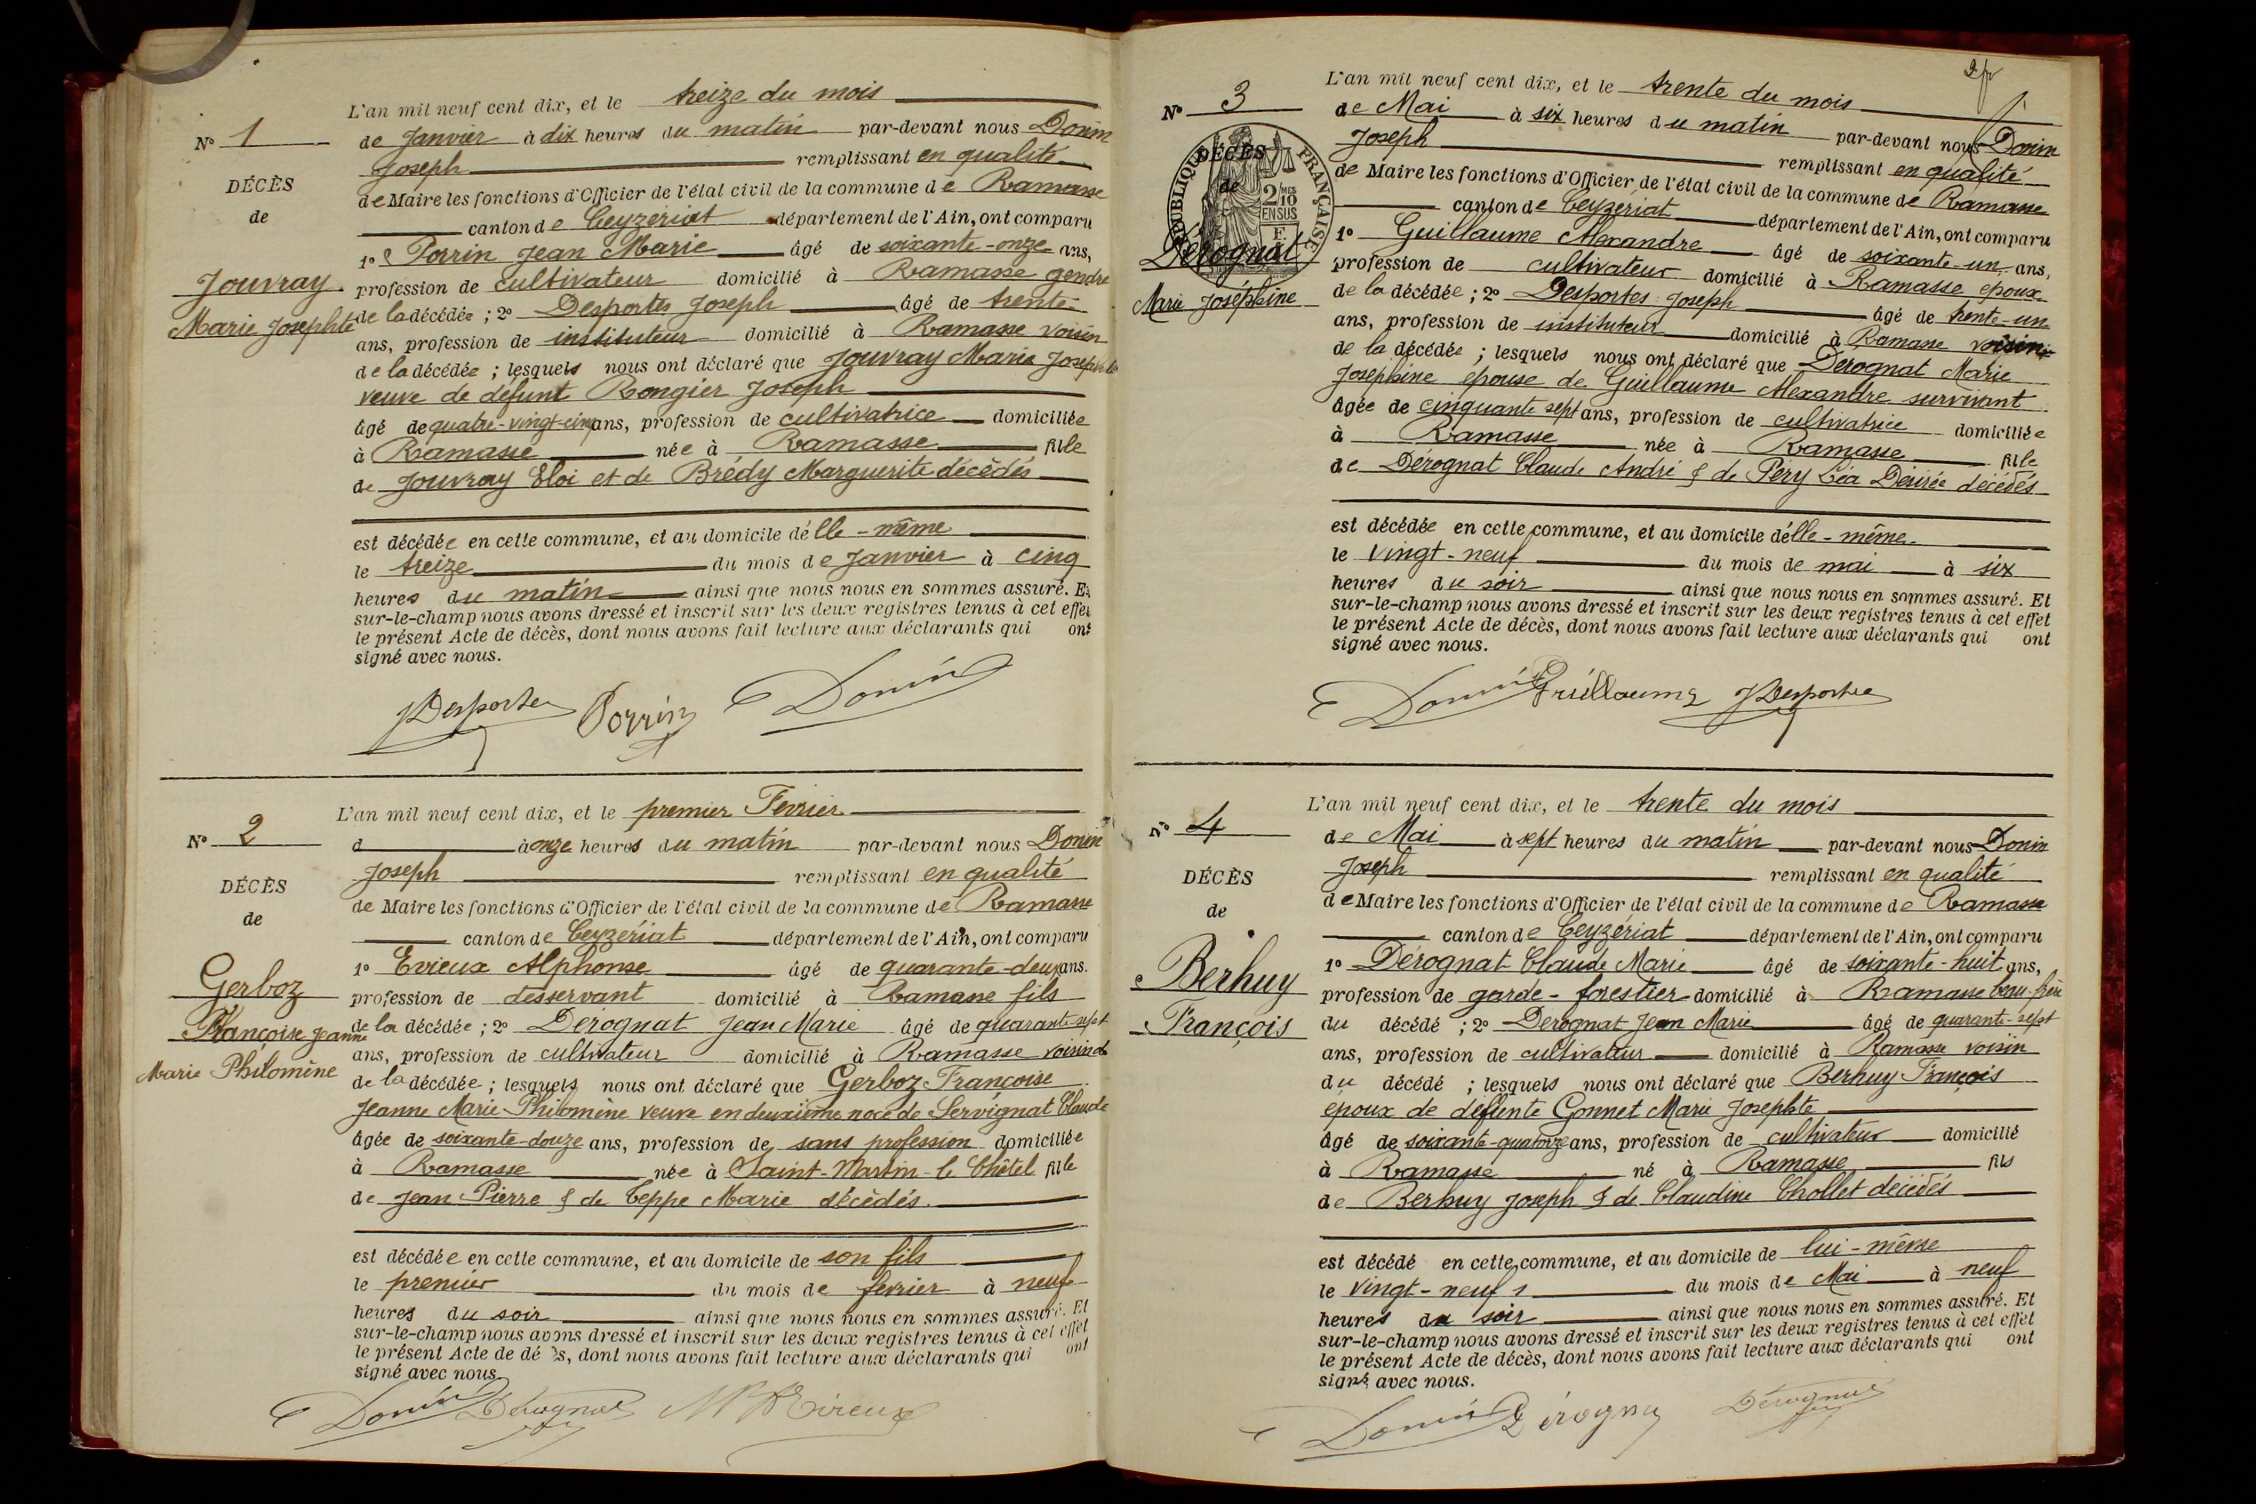 L'an mil neuf cent dix, et le treize du mois
No 1
de Janvier à dix heures du matin par-devant nous Donin
Joseph remplissant en qualité
DÉCÈS
de Maire les fonctions d'Officier de l'état civil de la commune de Ramasse
de
canton de Ceyzériat département de l'Ain, ont comparu
1° Perrin Jean Marie âgé de soixante-onze ans,
Jouvray
profession de cultivateur domicilié à Ramasse gendre
Marie Josephte
de la décédée ; 2° Desportes Joseph âgé de trente
ans, profession de instituteur domicilié à Ramasse voisin
de la décédée ; lesquels nous ont déclaré que Jouvray Marie Josephte
veuve de défunt Rongier Joseph
âgé de quatre-vingt-cinq ans, profession de cultivatrice domiciliée
à Ramasse née à Ramasse fille
de Jouvray Eloi et de Brédy Marguerite décédés
est décédée en cette commune, et au domicile d'elle-même
le treize du mois de Janvier à cinq
heures du matin ainsi que nous nous en sommes assuré. Et
sur-le-champ nous avons dressé et inscrit sur les deux registres tenus à cet effet
le présent Acte de décès, dont nous avons fait lecture aux déclarants qui ont
signé avec nous.
JDesportes Porrin Donin
L'an mil neuf cent dix, et le premier Février
No 2
d à onze heures du matin par-devant nous Donin
Joseph remplissant en qualité
DÉCÈS
de Maire les fonctions d'Officier de l'état civil de la commune de Ramasse
de
canton de Ceyzériat département de l'Ain, ont comparu
1° Evieux Alphonse âgé de quarante-deux ans.
Gerboz
profession de desservant domicilié à Ramasse fils
Françoise Jeanne
de la décédée ; 2° Dérognat Jean Marie âgé de quarante-sept
ans, profession de cultivateur domicilié à Ramasse voisin de
Marie Philomène
de la décédée ; lesquels nous ont déclaré que Gerboz Françoise
Jeanne Marie Philomène veuve en deuxième noce de Servignat Claude
âgée de soixante-douze ans, profession de sans profession domiciliée
à Ramasse née à Saint-Martin-le Châtel fille
de Jean Pierre & de Ceppe Marie décédés.
est décédée en cette commune, et au domicile de son fils
le premier du mois de fevrier à neuf
heures du soir ainsi que nous nous en sommes assuré. Et
sur-le-champ nous avons dressé et inscrit sur les deux registres tenus à cet effet
le présent Acte de décès, dont nous avons fait lecture aux déclarants qui ont
signé avec nous.
Donin Dérognat Evieux
L'an mil neuf cent dix, et le trente du mois
No 3
de Mai à six heures du matin par-devant nous Donin
Joseph remplissant en qualité
RÉPUBLIQUE FRANÇAISE
2/10 EN SUS
DÉCÈS
de Maire les fonctions d'Officier de l'état civil de la commune de Ramasse
de
canton de Ceyzériat département de l'Ain, ont comparu
1° Guillaume Alexandre âgé de soixante-un ans,
Dérognat
profession de cultivateur domicilié à Ramasse epoux
Marie Joséphine
de la décédée ; 2° Desportes Joseph âgé de trente-un
ans, profession de instituteur domicilié à Ramasse voisin
de la décédée ; lesquels nous ont déclaré que Dérognat Marie
Josephine epouse de Guillaume Alexandre survivant
âgée de cinquante sept ans, profession de cultivatrice domiciliée
à Ramasse née à Ramasse fille
de Dérognat Claude André & de Péry Léa Désirée décédés
est décédée en cette commune, et au domicile d'elle-même
le vingt-neuf du mois de mai à six
heures du soir ainsi que nous nous en sommes assuré. Et
sur-le-champ nous avons dressé et inscrit sur les deux registres tenus à cet effet
le présent Acte de décès, dont nous avons fait lecture aux déclarants qui ont
signé avec nous.
Donin Guillaume JDesportes
L'an mil neuf cent dix, et le trente du mois
No 4
de Mai à sept heures du matin par-devant nous Donin
Joseph remplissant en qualité
DÉCÈS
de Maire les fonctions d'Officier de l'état civil de la commune de Ramasse
de
canton de Ceyzériat département de l'Ain, ont comparu
1° Dérognat Claude Marie âgé de soixante-huit ans,
Berhuy
profession de garde-forestier domicilié à Ramasse beau-frère
François
du décédé ; 2° Derognat Jean Marie âgé de quarante-sept
ans, profession de cultivateur domicilié à Ramasse voisin
du décédé ; lesquels nous ont déclaré que Berhuy François
époux de défunte Gonnet Marie Josephte
âgé de soixante-quatorze ans, profession de cultivateur domicilié
à Ramasse né à Ramasse fils
de Berhuy Joseph & de Claudine Chollet décédés
est décédé en cette commune, et au domicile de lui-même
le vingt-neuf du mois de Mai à neuf
heures du soir ainsi que nous nous en sommes assuré. Et
sur-le-champ nous avons dressé et inscrit sur les deux registres tenus à cet effet
le présent Acte de décès, dont nous avons fait lecture aux déclarants qui ont
signé avec nous.
Donin Dérognat Dérognat